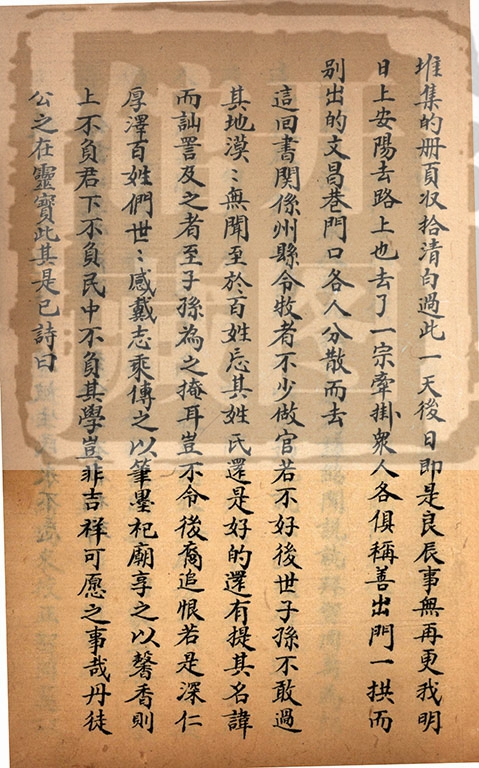 堆集的册頁収拾清白過此一天後日即是良辰事無再更我明
日上安陽去路上也去了一宗牽掛衆人各俱稱善出門一拱而
别出的文昌巷門口各人分散而去
這回書関係州縣令牧者不少做官若不好後世子孫不敢過
其地漠〻無聞至於百姓忘其姓氏還是好的還有提其名諱
而訕詈及之者至子孫為之掩耳豈不令後裔追恨若是深仁
厚澤百姓們世〻感戴志乘傳之以筆墨祀廟享之以馨香則
上不負君下不負民中不負其學豈非吉祥可愿之事哉丹徒
公之在靈寳此其是已詩曰